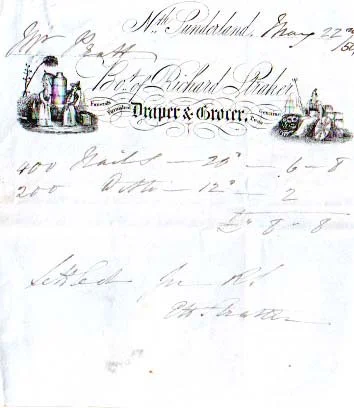 Nth Sunderland, May 22nd
Mr
Bot of Richard Straker,
Funerals Furnished
Draper & Grocer,
Genuine Teas
400 Nails — 20d — 6 - 8
200 Ditto — 12d — 2
£ - 8 - 8
Settled for R S